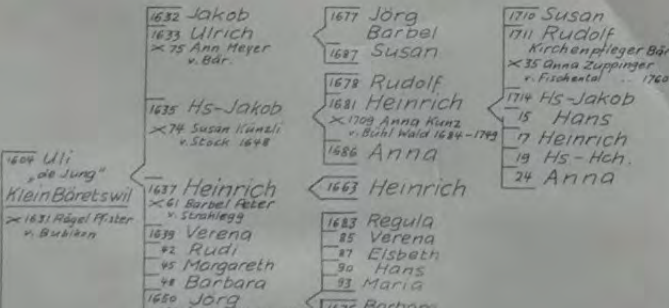 1604 Uli
„de Jung"
Klein Bäretswil
×1631 Rägel Pfister
v. Bubikon
1632 Jakob
1633 Ulrich
×75 Ann Meyer
v. Bär.
1635 Hs-Jakob
×74 Susan Künzli
v. Stock 1648
1637 Heinrich
×61 Barbel Peter
v. Strahlegg
1639 Verena
42 Rudi
45 Margareth
48 Barbara
1650 Jörg
1677 Jörg
Barbel
1687 Susan
1678 Rudolf
1681 Heinrich
×1709 Anna Kunz
v. Bühl Wald 1684-1749
1686 Anna
1663 Heinrich
1683 Regula
85 Verena
87 Elsbeth
90 Hans
93 Maria
Barbara
1710 Susan
1711 Rudolf
Kirchenpfleger Bär
×35 Anna Zuppinger
v. Fischental .. 1760
1714 Hs-Jakob
15 Hans
17 Heinrich
19 Hs-Hch.
24 Anna